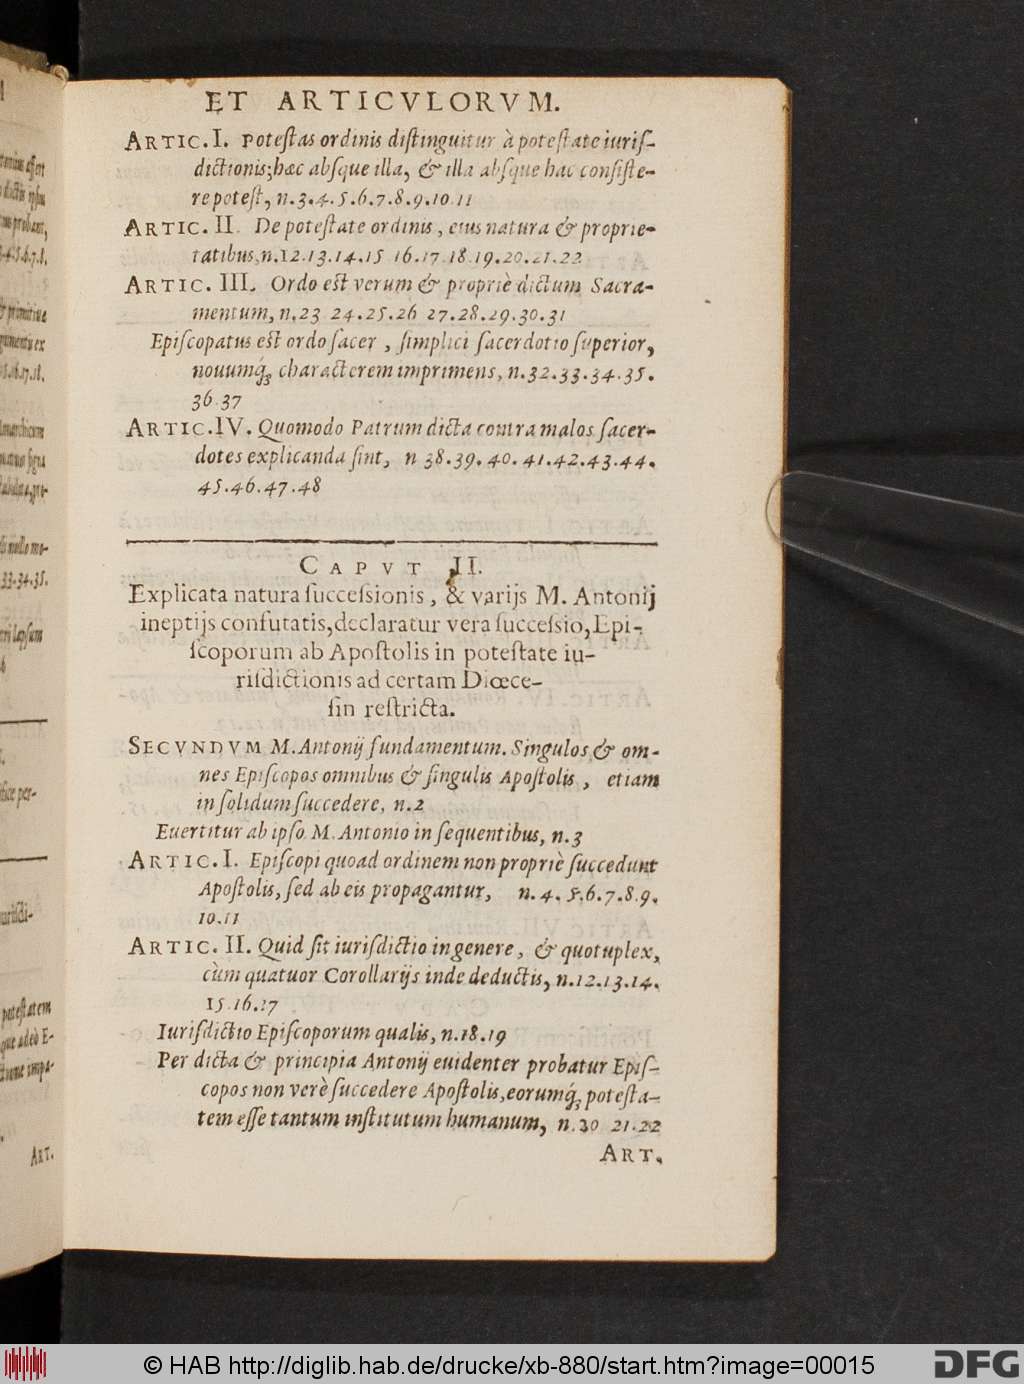 ET ARTICVLORVM.
ARTIC. I. Poteſtas ordinis diſtinguitur à poteſtate iuriſ-
dictionis; hæc abſque illa, & illa abſque hac conſiſte-
re poteſt, n.3.4.5.6.7.8.9.10.11
ARTIC. II. De poteſtate ordinis, eius natura & proprie-
tatibus, n.12.13.14.15 16.17.18.19.20.21.22
ARTIC. III. Ordo eſt verum & propriè dictum Sacra-
mentum, n.23 24.25.26 27.28.29.30.31
Epiſcopatus eſt ordo ſacer, ſimplici ſacerdotio ſuperior,
nouumq́ꝫ characterem imprimens, n.32.33.34.35.
36.37
ARTIC. IV. Quomodo Patrum dicta contra malos ſacer-
dotes explicanda ſint, n 38.39.40.41.42.43.44.
45.46.47.48
CAPVT II.
Explicata natura ſucceſsionis, & varijs M. Antonij
ineptijs confutatis, declaratur vera ſucceſsio, Epi-
ſcoporum ab Apoſtolis in poteſtate iu-
riſdictionis ad certam Diœce-
ſin reſtricta.
SECVNDVM M. Antonij fundamentum. Singulos & om-
nes Epiſcopos omnibus & ſingulis Apoſtolis, etiam
in ſolidum ſuccedere, n.2
Euertitur ab ipſo M. Antonio in ſequentibus, n.3
ARTIC. I. Epiſcopi quoad ordinem non propriè ſuccedunt
Apoſtolis, ſed ab eis propagantur, n.4.5.6.7.8.9.
10.11
ARTIC. II. Quid ſit iuriſdictio in genere, & quotuplex,
cùm quatuor Corollarijs inde deductis, n.12.13.14.
15.16.17
Iuriſdictio Epiſcoporum qualis, n.18.19
Per dicta & principia Antonij euidenter probatur Epiſ-
copos non verè ſuccedere Apoſtolis, eorumq́ꝫ poteſta-
tem eſſe tantum inſtitutum humanum, n.30 21.22
ART.
© HAB http://diglib.hab.de/drucke/xb-880/start.htm?image=00015
DFG